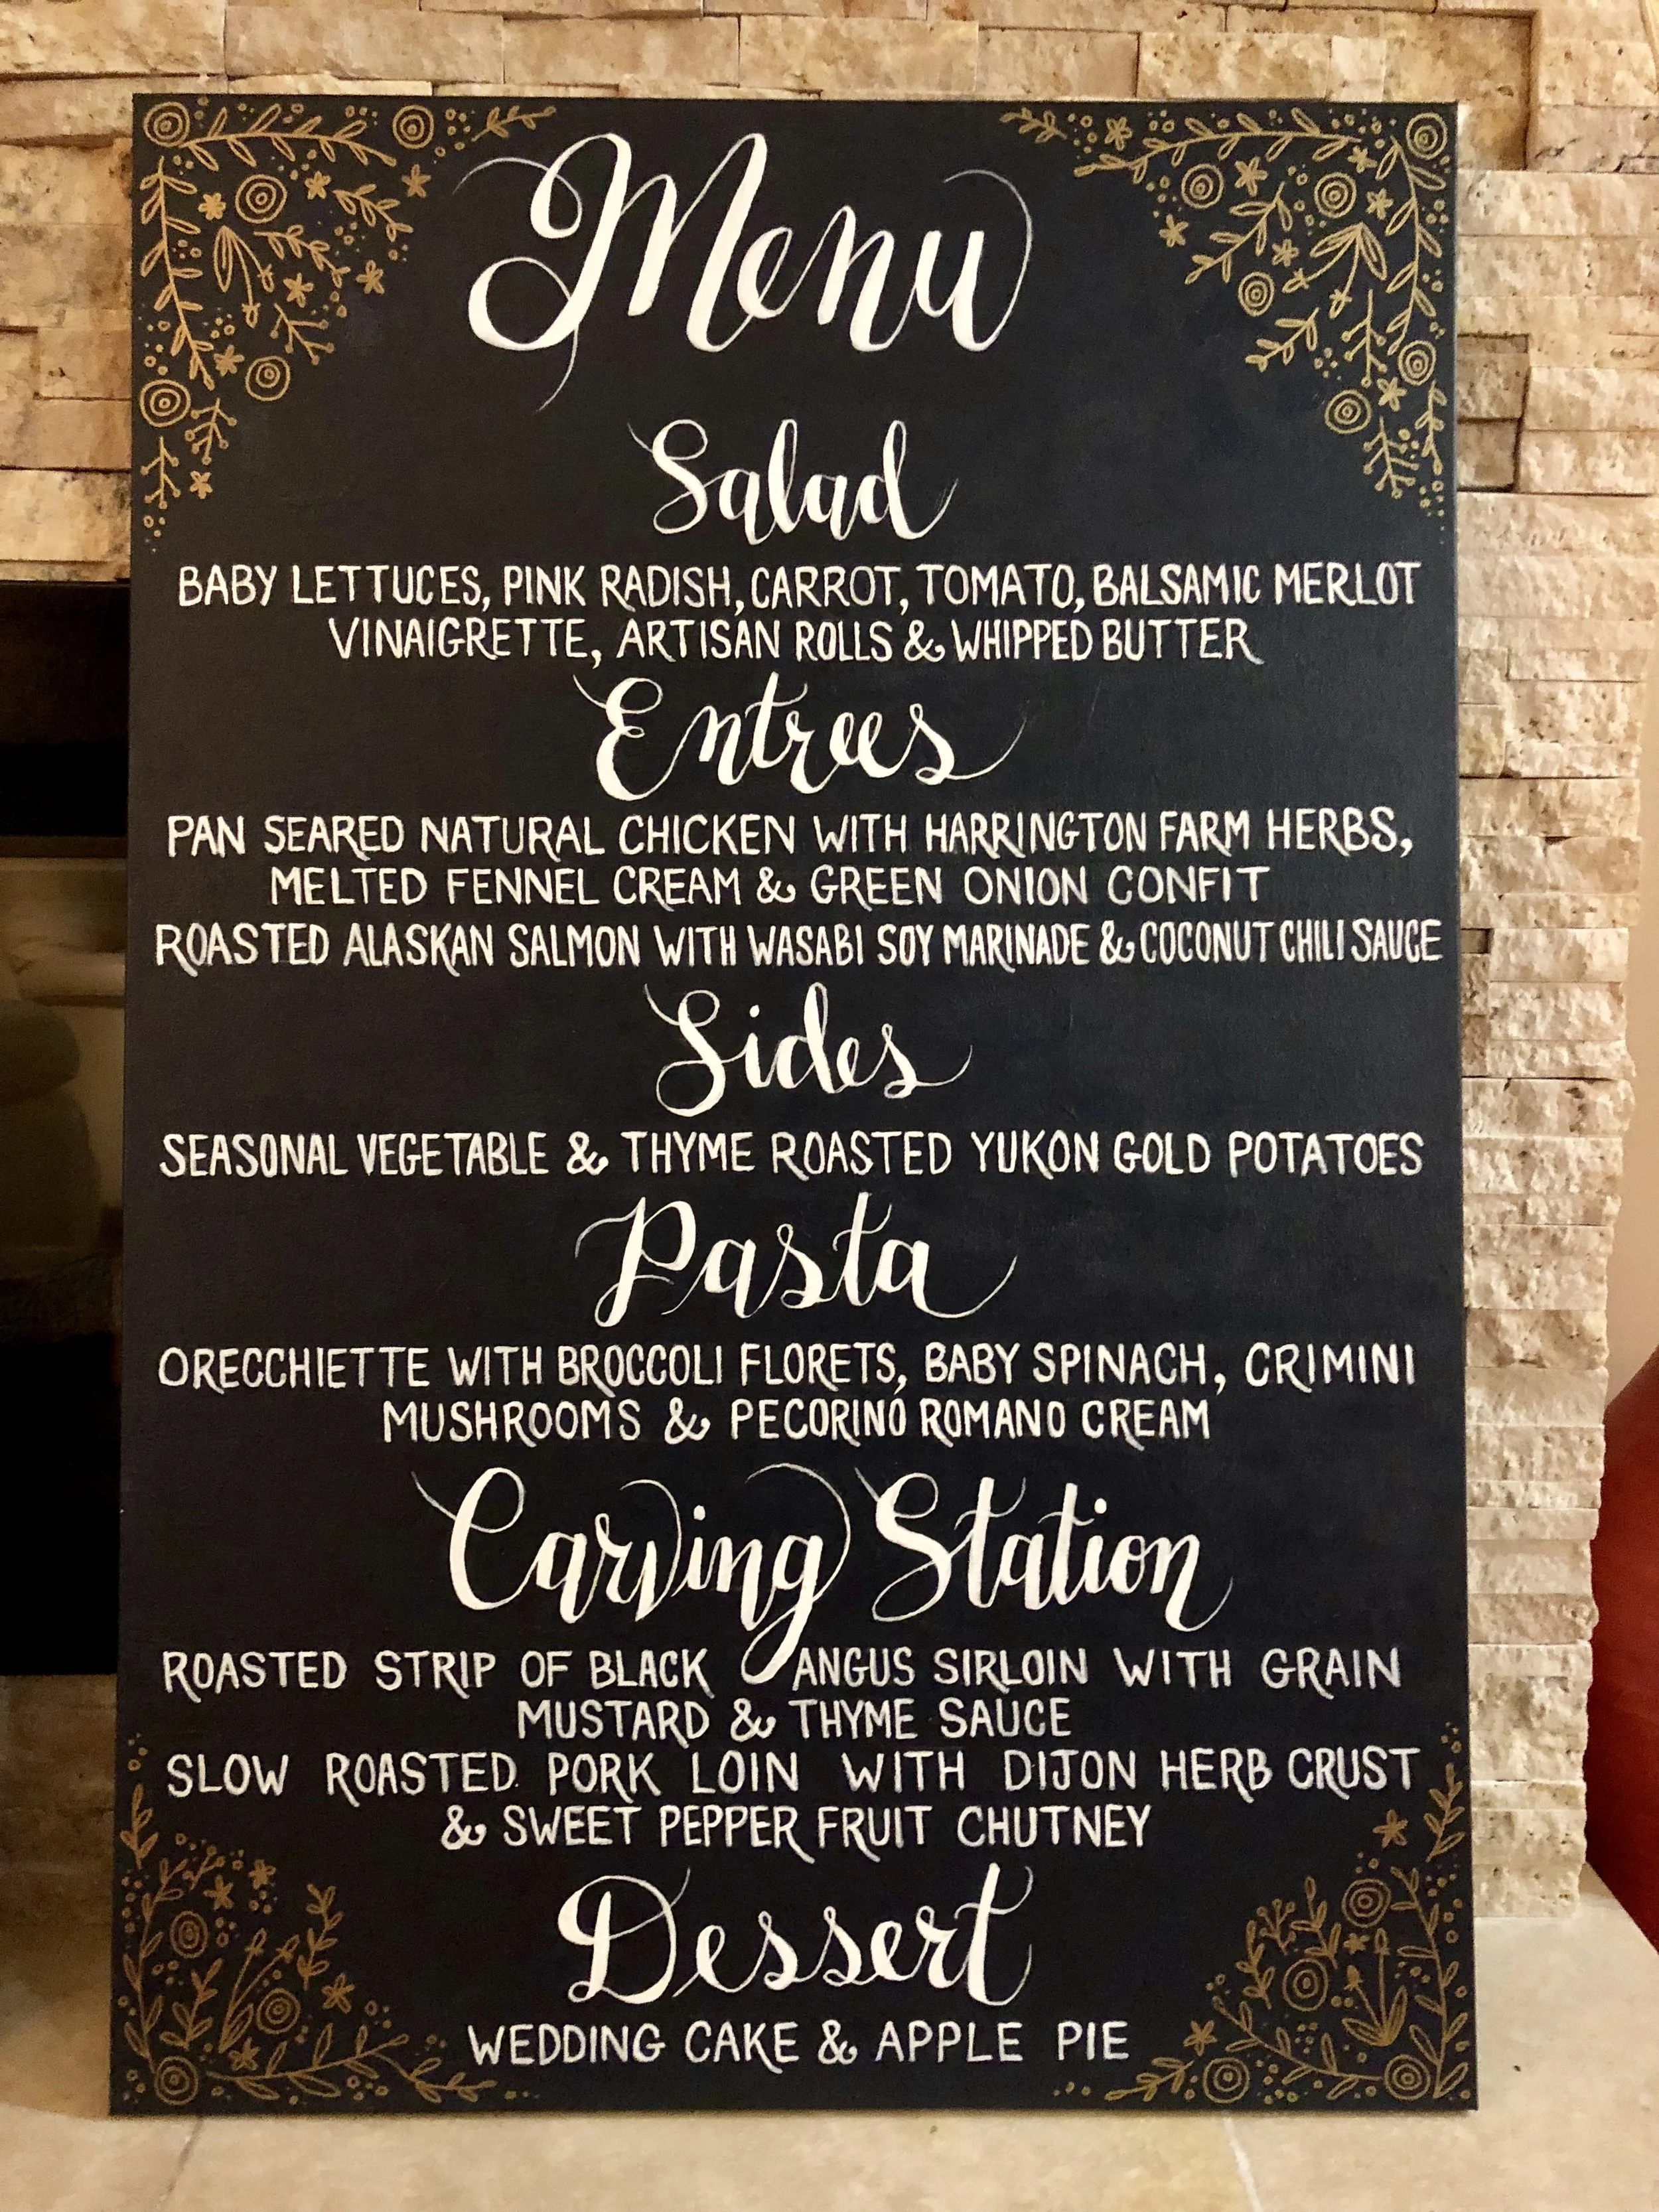 Menu
Salad
BABY LETTUCES, PINK RADISH, CARROT, TOMATO, BALSAMIC MERLOT
VINAIGRETTE, ARTISAN ROLLS & WHIPPED BUTTER
Entrees
PAN SEARED NATURAL CHICKEN WITH HARRINGTON FARM HERBS,
MELTED FENNEL CREAM & GREEN ONION CONFIT
ROASTED ALASKAN SALMON WITH WASABI SOY MARINADE & COCONUT CHILI SAUCE
Sides
SEASONAL VEGETABLE & THYME ROASTED YUKON GOLD POTATOES
Pasta
ORECCHIETTE WITH BROCCOLI FLORETS, BABY SPINACH, CRIMINI
MUSHROOMS & PECORINO ROMANO CREAM
Carving Station
ROASTED STRIP OF BLACK ANGUS SIRLOIN WITH GRAIN
MUSTARD & THYME SAUCE
SLOW ROASTED PORK LOIN WITH DIJON HERB CRUST
& SWEET PEPPER FRUIT CHUTNEY
Dessert
WEDDING CAKE & APPLE PIE